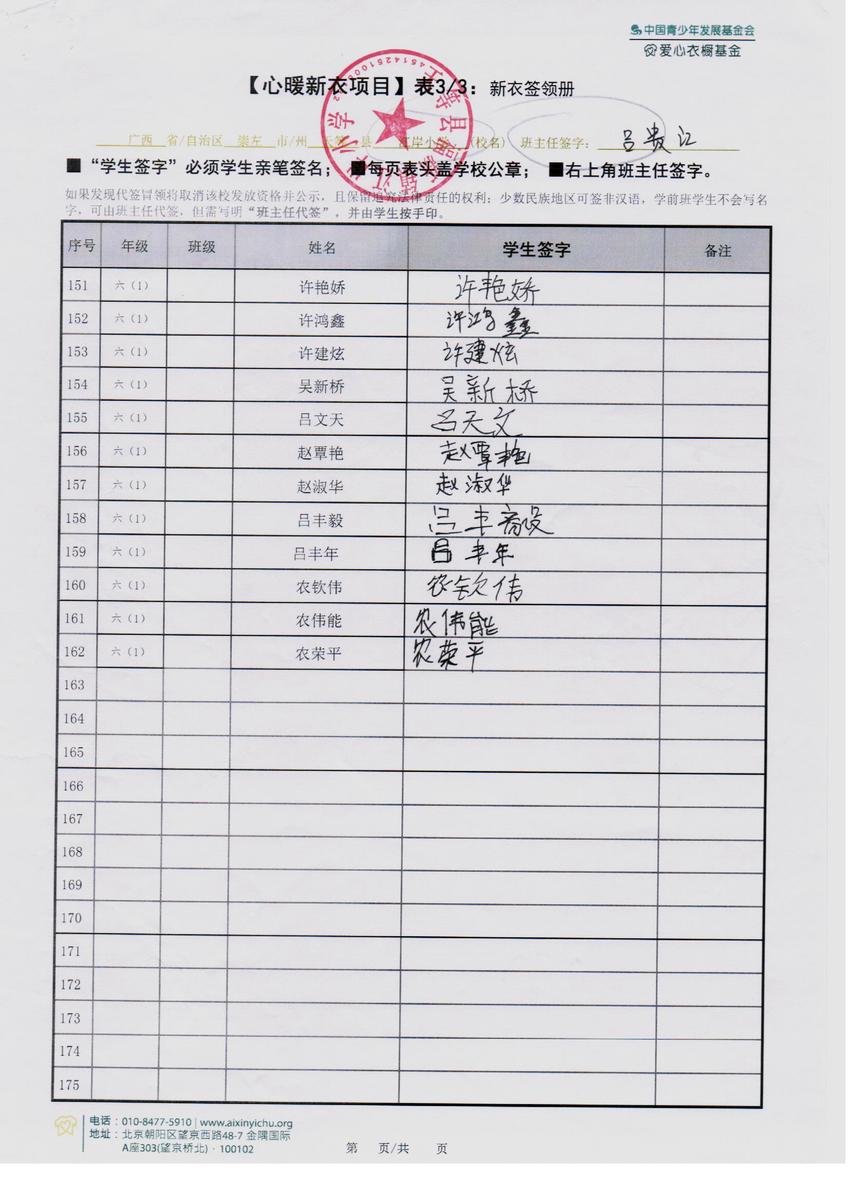 中国青少年发展基金会
爱心衣橱基金
【心暖新衣项目】表3/3：新衣签领册
广西 省/自治区 崇左 市/州 县 江岸小学 (校名) 班主任签字：吕贵江
■“学生签字”必须学生亲笔签名；■每页表头盖学校公章；■右上角班主任签字。
如果发现代签冒领将取消该校发放资格并公示，且保留追究法律责任的权利；少数民族地区可签非汉语，学前班学生不会写名
字，可由班主任代签，但需写明“班主任代签”，并由学生按手印。
序号 年级 班级 姓名 学生签字 备注
151 六（1） 许艳娇 许艳娇
152 六（1） 许鸿鑫 许鸿鑫
153 六（1） 许建炫 许建炫
154 六（1） 吴新桥 吴新桥
155 六（1） 吕文天 吕天文
156 六（1） 赵覃艳 赵覃艳
157 六（1） 赵淑华 赵淑华
158 六（1） 吕丰毅 吕丰
159 六（1） 吕丰年 吕丰年
160 六（1） 农钦伟 农钦伟
161 六（1） 农伟能 农伟能
162 六（1） 农荣平 农荣平
163
164
165
166
167
168
169
170
171
172
173
174
175
电话：010-8477-5910 | www.aixinyichu.org
地址：北京朝阳区望京西路48-7 金隅国际
A座303(望京桥北)·100102
第 页/共 页